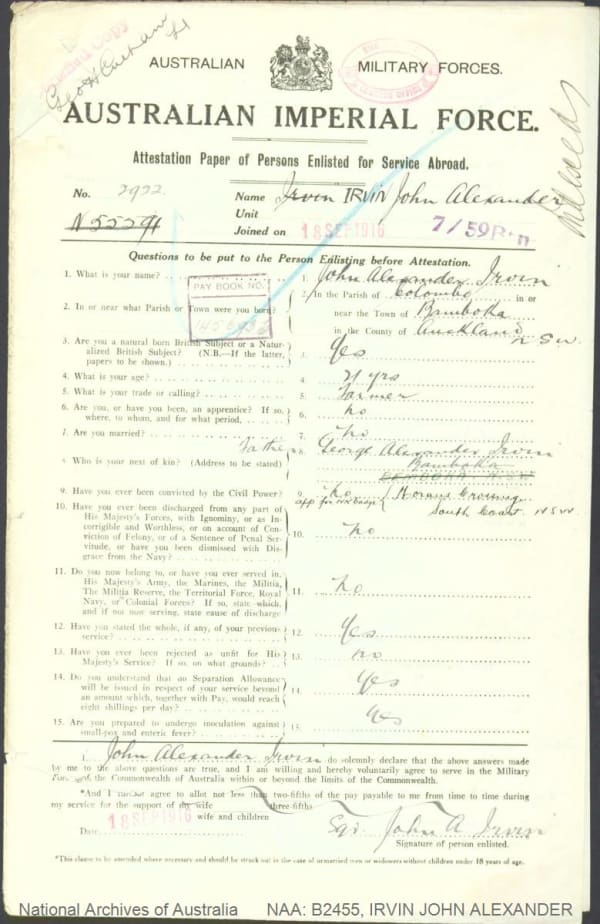 AUSTRALIAN MILITARY FORCES.
AUSTRALIAN IMPERIAL FORCE.
Attestation Paper of Persons Enlisted for Service Abroad.
No. 2922. Name Irvin IRVIN John Alexander
N55291 Unit
Joined on 18 SEP 1916 7/59 Btn
Questions to be put to the Person Enlisting before Attestation.
1. What is your name? 1. John Alexander Irvin
PAY BOOK NO.
2. In or near what Parish or Town were you born? 2. In the Parish of Colombo in or
near the Town of Bamboka
in the County of Auckland NSW
3. Are you a natural born British Subject or a Natur-
alized British Subject? (N.B.—If the latter,
papers to be shown.) 3. Yes
4. What is your age? 4. 21 yrs
5. What is your trade or calling? 5. Farmer
6. Are you, or have you been, an apprentice? If so,
where, to whom, and for what period, 6. No
7. Are you married? 7. No
Father
8. Who is your next of kin? (Address to be stated) 8. George Alexander Irvin
Bamboka
9. Have you ever been convicted by the Civil Power? 9. No
South Coast NSW
10. Have you ever been discharged from any part of
His Majesty's Forces, with Ignominy, or as In-
corrigible and Worthless, or on account of Con-
viction of Felony, or of a Sentence of Penal Ser-
vitude, or have you been dismissed with Dis-
grace from the Navy? 10. No
11. Do you now belong to, or have you ever served in,
His Majesty's Army, the Marines, the Militia,
The Militia Reserve, the Territorial Force, Royal
Navy, or Colonial Forces? If so, state which,
and if not now serving, state cause of discharge 11. No
12. Have you stated the whole, if any, of your previous
service? 12. Yes
13. Have you ever been rejected as unfit for His
Majesty's Service? If so, on what grounds? 13. no
14. Do you understand that no Separation Allowance
will be issued in respect of your service beyond
an amount which, together with Pay, would reach
eight shillings per day? 14. Yes
15. Are you prepared to undergo inoculation against
small-pox and enteric fever? 15. Yes
I, John Alexander Irvin do solemnly declare that the above answers made
by me to the above questions are true, and I am willing and hereby voluntarily agree to serve in the Military
Forces of the Commonwealth of Australia within or beyond the limits of the Commonwealth.
*And I further agree to allot not less than two-fifths of the pay payable to me from time to time during
three-fifths
my service for the support of my wife
wife and children
Date 18 SEP 1916 Sgd John A Irvin
Signature of person enlisted.
*This clause to be amended where necessary and should be struck out in the case of unmarried men or widowers without children under 18 years of age.
National Archives of Australia NAA: B2455, IRVIN JOHN ALEXANDER